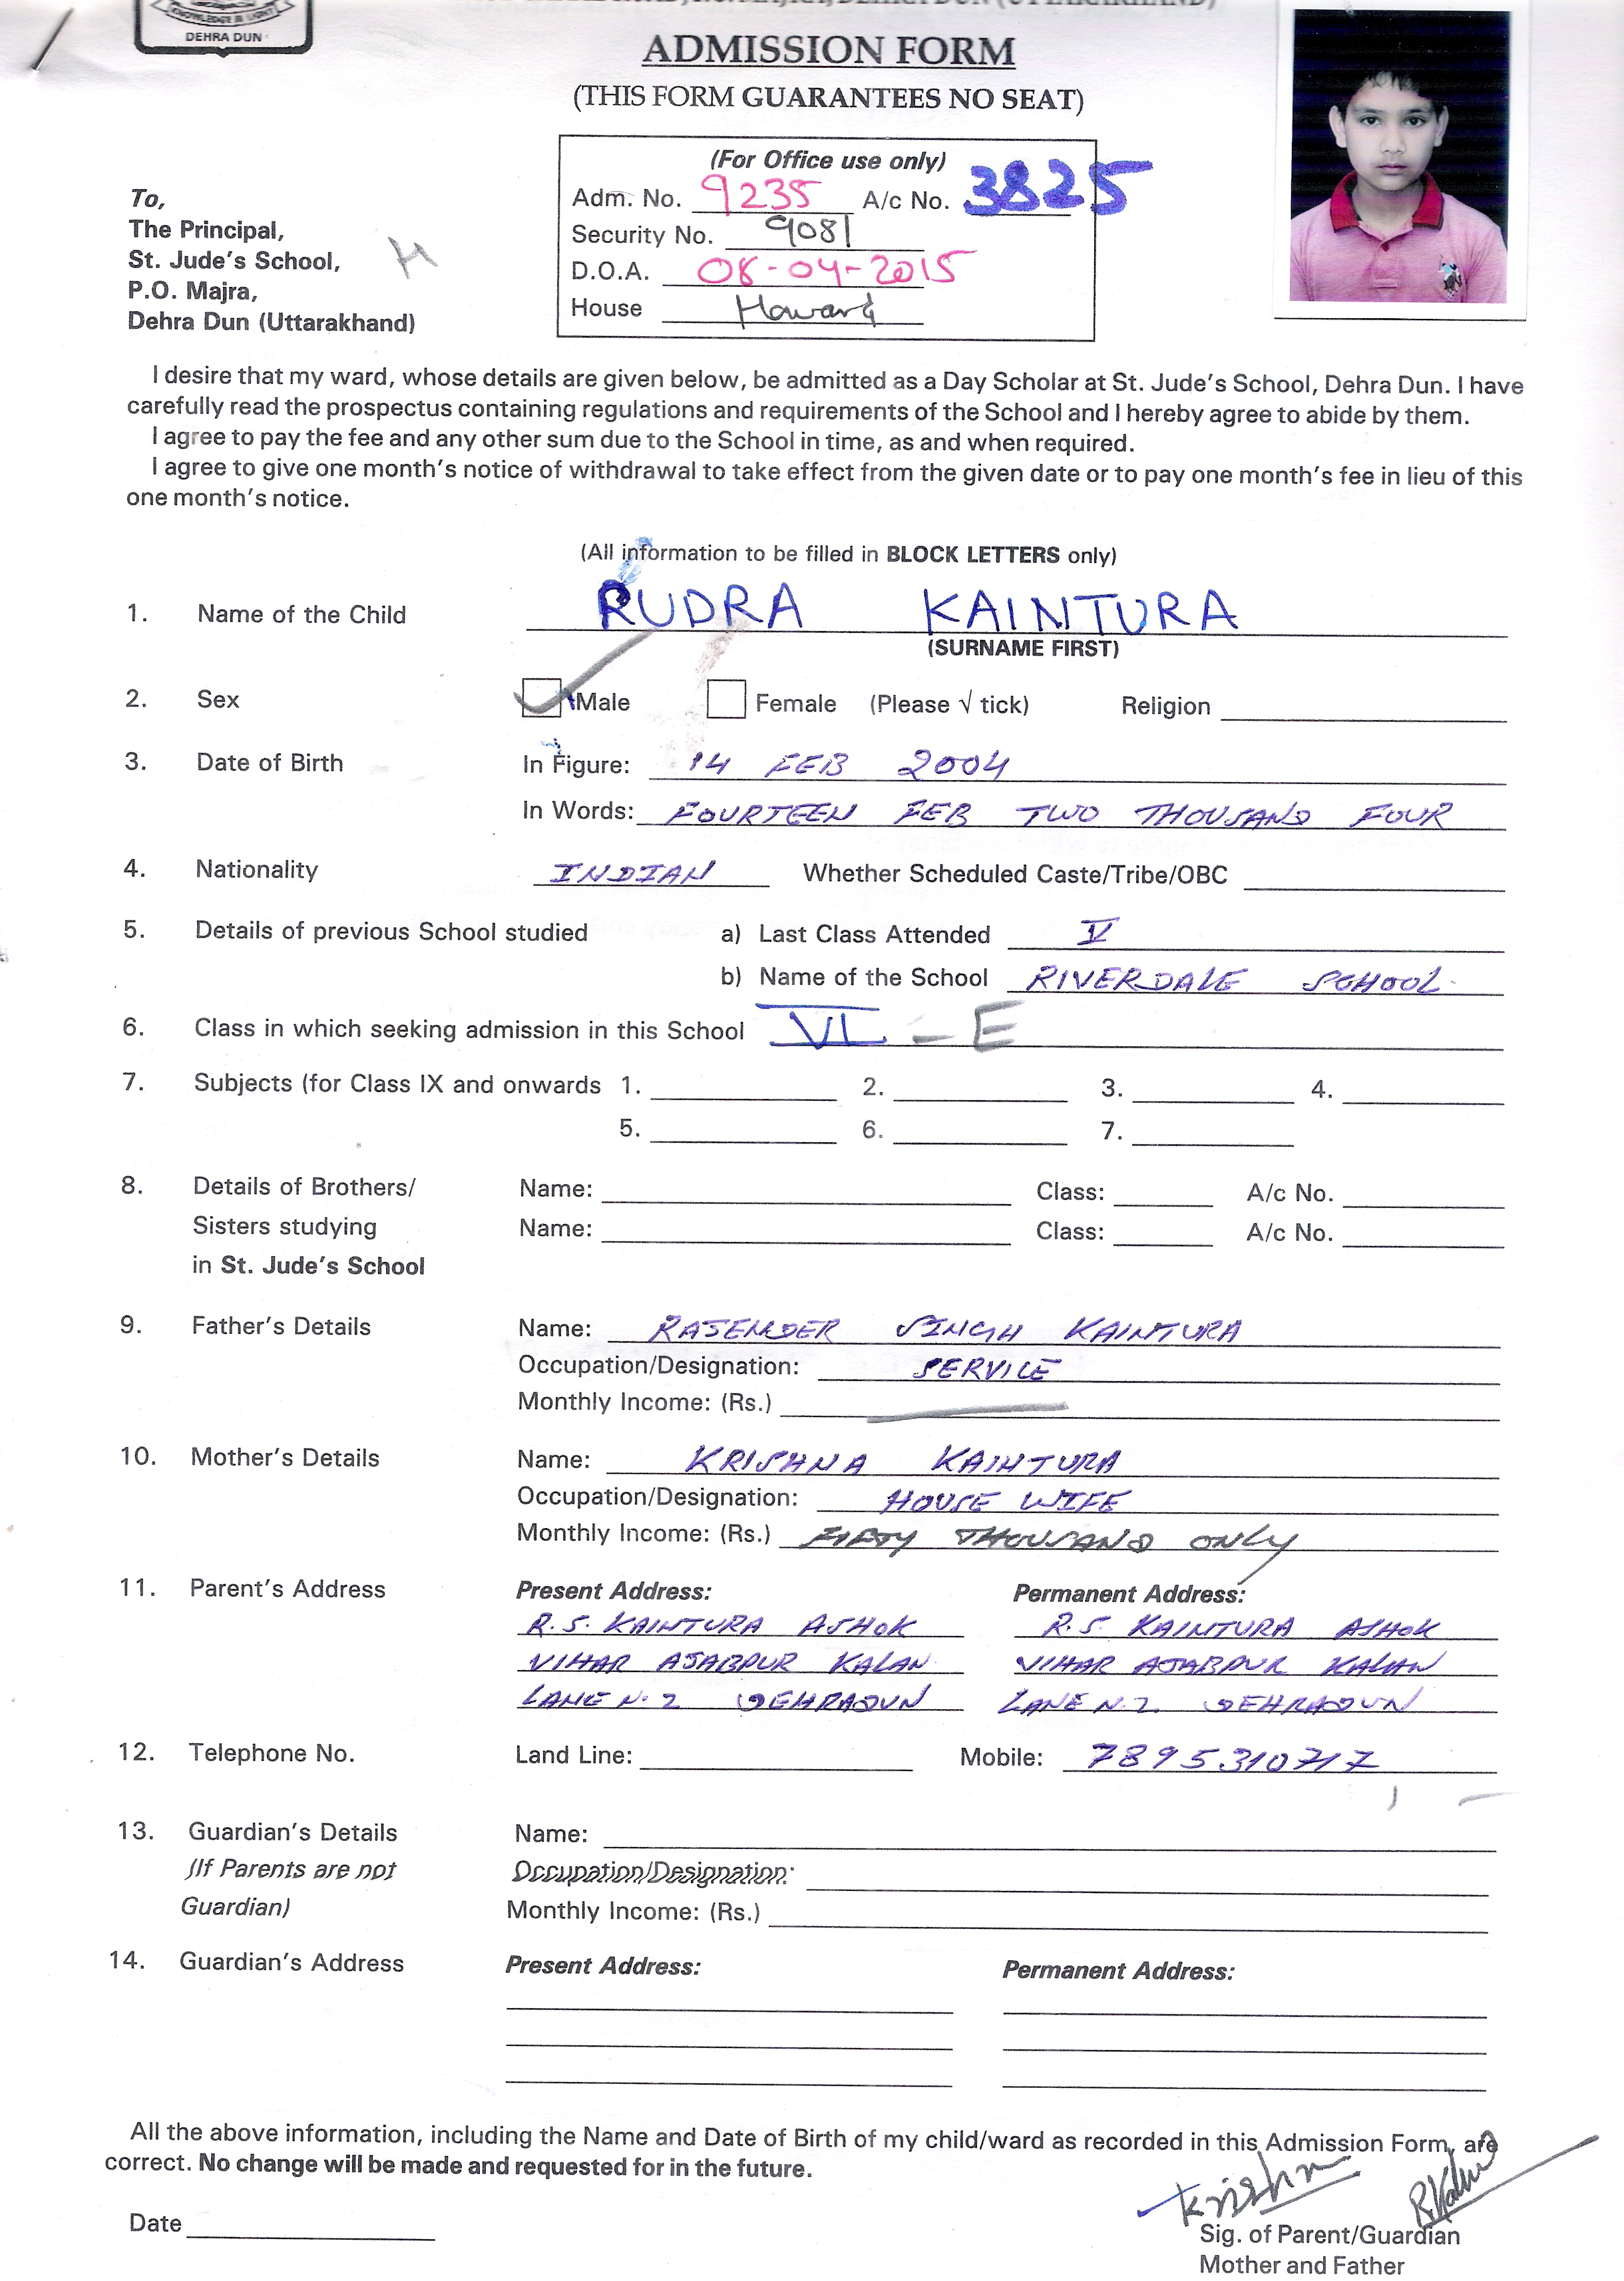 KNOWLEDGE IS LIGHT
DEHRA DUN
ADMISSION FORM
(THIS FORM GUARANTEES NO SEAT)
(For Office use only)
Adm. No. 9235 A/c No. 3825
Security No. 9081
D.O.A. 08-04-2015
House Howard
To,
The Principal,
St. Jude's School,
P.O. Majra,
Dehra Dun (Uttarakhand)
H
I desire that my ward, whose details are given below, be admitted as a Day Scholar at St. Jude's School, Dehra Dun. I have
carefully read the prospectus containing regulations and requirements of the School and I hereby agree to abide by them.
I agree to pay the fee and any other sum due to the School in time, as and when required.
I agree to give one month's notice of withdrawal to take effect from the given date or to pay one month's fee in lieu of this
one month's notice.
(All information to be filled in BLOCK LETTERS only)
1. Name of the Child RUDRA KAINTURA
(SURNAME FIRST)
2. Sex Male Female (Please √ tick) Religion
3. Date of Birth In Figure: 14 FEB 2004
In Words: FOURTEEN FEB TWO THOUSAND FOUR
4. Nationality INDIAN Whether Scheduled Caste/Tribe/OBC
5. Details of previous School studied a) Last Class Attended V
b) Name of the School RIVERDALE SCHOOL
6. Class in which seeking admission in this School VI - E
7. Subjects (for Class IX and onwards 1. 2. 3. 4.
5. 6. 7.
8. Details of Brothers/ Name: Class: A/c No.
Sisters studying Name: Class: A/c No.
in St. Jude's School
9. Father's Details Name: RAJENDER SINGH KAINTURA
Occupation/Designation: SERVICE
Monthly Income: (Rs.)
10. Mother's Details Name: KRISHNA KAINTURA
Occupation/Designation: HOUSE WIFE
Monthly Income: (Rs.) FIFTY THOUSAND ONLY
11. Parent's Address Present Address: Permanent Address:
R.S. KAINTURA ASHOK R.S. KAINTURA ASHOK
VIHAR AJABPUR KALAN VIHAR AJABPUR KALAN
LANE N. 2 DEHRADUN LANE N. 2 DEHRADUN
12. Telephone No. Land Line: Mobile: 7895310717
13. Guardian's Details Name:
(If Parents are not Occupation/Designation:
Guardian) Monthly Income: (Rs.)
14. Guardian's Address Present Address: Permanent Address:
All the above information, including the Name and Date of Birth of my child/ward as recorded in this Admission Form, are
correct. No change will be made and requested for in the future.
Krishna
Date
Sig. of Parent/Guardian
Mother and Father